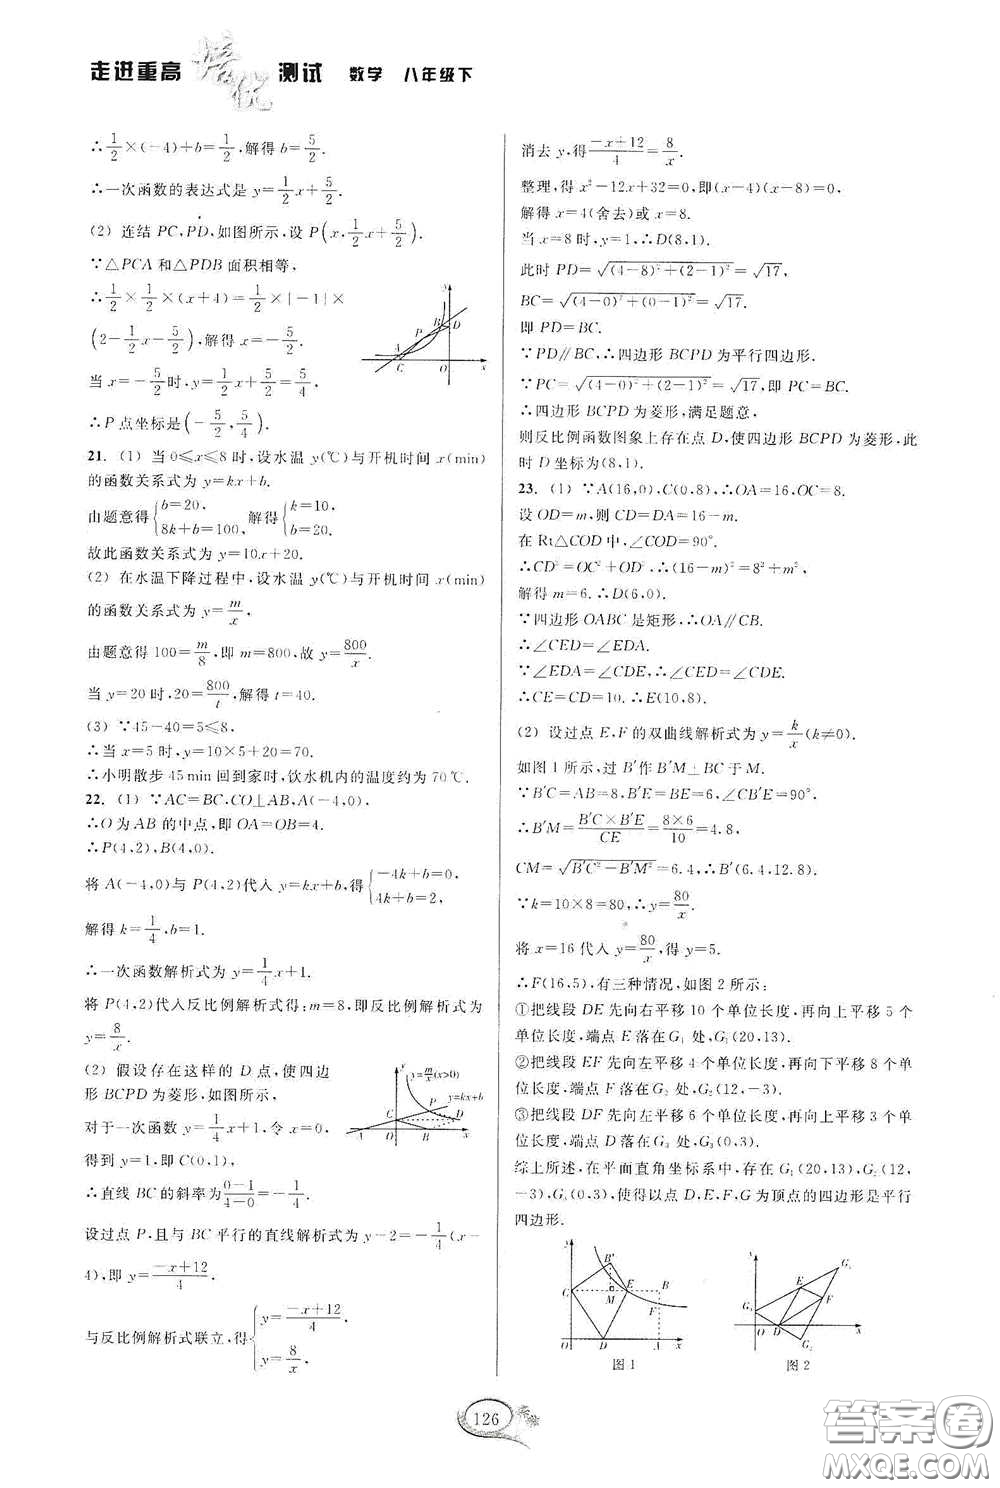 走进重高 培优 测试 数学 八年级下
∴1/2×(-4)+b=1/2,解得b=5/2.
∴一次函数的表达式是y=1/2x+5/2.
(2) 连结PC,PD,如图所示,设P(x,1/2x+5/2).
∵△PCA和△PDB面积相等,
∴1/2×1/2×(x+4)=1/2×|-1|×
(2-1/2x-5/2),解得x=-5/2.
当x=-5/2时,y=1/2x+5/2=5/4.
∴P点坐标是(-5/2,5/4).
y
B
D
P
A
C
O
x
21. (1) 当0≤x≤8时,设水温y(℃)与开机时间x(min)
的函数关系式为y=kx+b.
由题意得{b=20, 8k+b=100, 解得{k=10, b=20.
故此函数关系式为y=10x+20.
(2) 在水温下降过程中,设水温y(℃)与开机时间x(min)
的函数关系式为y=m/x,
由题意得100=m/8,即m=800,故y=800/x.
当y=20时,20=800/t,解得t=40.
(3) ∵45-40=5≤8,
∴当x=5时,y=10×5+20=70.
∴小明散步45min回到家时,饮水机内的温度约为70℃.
22. (1) ∵AC=BC,CO⊥AB,A(-4,0),
∴O为AB的中点,即OA=OB=4.
∴P(4,2),B(4,0).
将A(-4,0)与P(4,2)代入y=kx+b,得{-4k+b=0, 4k+b=2,
解得k=1/4,b=1.
∴一次函数解析式为y=1/4x+1.
将P(4,2)代入反比例解析式得:m=8,即反比例解析式为
y=8/x.
(2) 假设存在这样的D点,使四边
形BCPD为菱形,如图所示,
对于一次函数y=1/4x+1,令x=0,
得到y=1,即C(0,1),
y=m/x(x>0)
y=kx+b
C
P
D
A
O
B
x
∴直线BC的斜率为(0-1)/(4-0)=-1/4.
设过点P,且与BC平行的直线解析式为y-2=-1/4(x-
4),即y=(-x+12)/4.
与反比例解析式联立,得{y=(-x+12)/4, y=8/x,
消去y,得(-x+12)/4=8/x.
整理,得x²-12x+32=0,即(x-4)(x-8)=0,
解得x=4(舍去)或x=8.
当x=8时,y=1,∴D(8,1).
此时PD=√((4-8)²+(2-1)²)=√17,
BC=√((4-0)²+(0-1)²)=√17.
即PD=BC.
∵PD∥BC,∴四边形BCPD为平行四边形.
∵PC=√((4-0)²+(2-1)²)=√17,即PC=BC.
∴四边形BCPD为菱形,满足题意.
则反比例函数图象上存在点D,使四边形BCPD为菱形,此
时D坐标为(8,1).
23. (1) ∵A(16,0),C(0,8),∴OA=16,OC=8.
设OD=m,则CD=DA=16-m.
在Rt△COD中,∠COD=90°.
∴CD²=OC²+OD².∴(16-m)²=8²+m²,
解得m=6.∴D(6,0).
∵四边形OABC是矩形,∴OA∥CB.
∴∠CED=∠EDA.
∵∠EDA=∠CDE,∴∠CED=∠CDE.
∴CE=CD=10.∴E(10,8).
(2) 设过点E,F的双曲线解析式为y=k/x(k≠0).
如图1所示,过B′作B′M⊥BC于M.
∵B′C=AB=8,B′E=BE=6,∠CB′E=90°.
∴B′M=(B′C×B′E)/CE=(8×6)/10=4.8,
CM=√(B′C²-B′M²)=6.4,∴B′(6.4,12.8).
∵k=10×8=80,∴y=80/x.
将x=16代入y=80/x,得y=5.
∴F(16,5),有三种情况,如图2所示:
①把线段DE先向右平移10个单位长度,再向上平移5个
单位长度,端点E落在G₁处,G₁(20,13).
②把线段EF先向左平移4个单位长度,再向下平移8个单
位长度,端点F落在G₂处,G₂(12,-3).
③把线段DF先向左平移6个单位长度,再向上平移8个单
位长度,端点D落在G₃处,G₃(0,3).
综上所述,在平面直角坐标系中,存在G₁(20,13),G₂(12,
-3),G₃(0,3),使得以点D,E,F,G为顶点的四边形是平行
四边形.
y
B′
C
M
E
B
F
O
D
A
x
图1
y
G₁
E
F
G₃
O
D
G₂
x
图2
126
答案圈
MXQE.COM